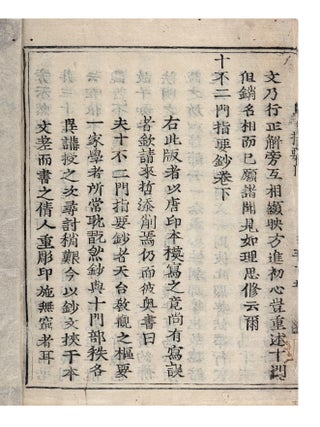 文乃行正解旁互相顯映方進初心豈重述十門
但銷名相而已願諸聞見如理思修云爾
十不二門指要鈔卷下
右此版者以唐印本模寫之竟尚有寫誤
者欲請來哲添削焉仍而彼奥書曰
夫十不二門指要鈔者天台教觀之樞要
一家學者所常耽翫然鈔與十門部秩各
異講授之次尋討稍艱今以鈔文挾于本
文差而書之倩人重彫印施無窮者耳